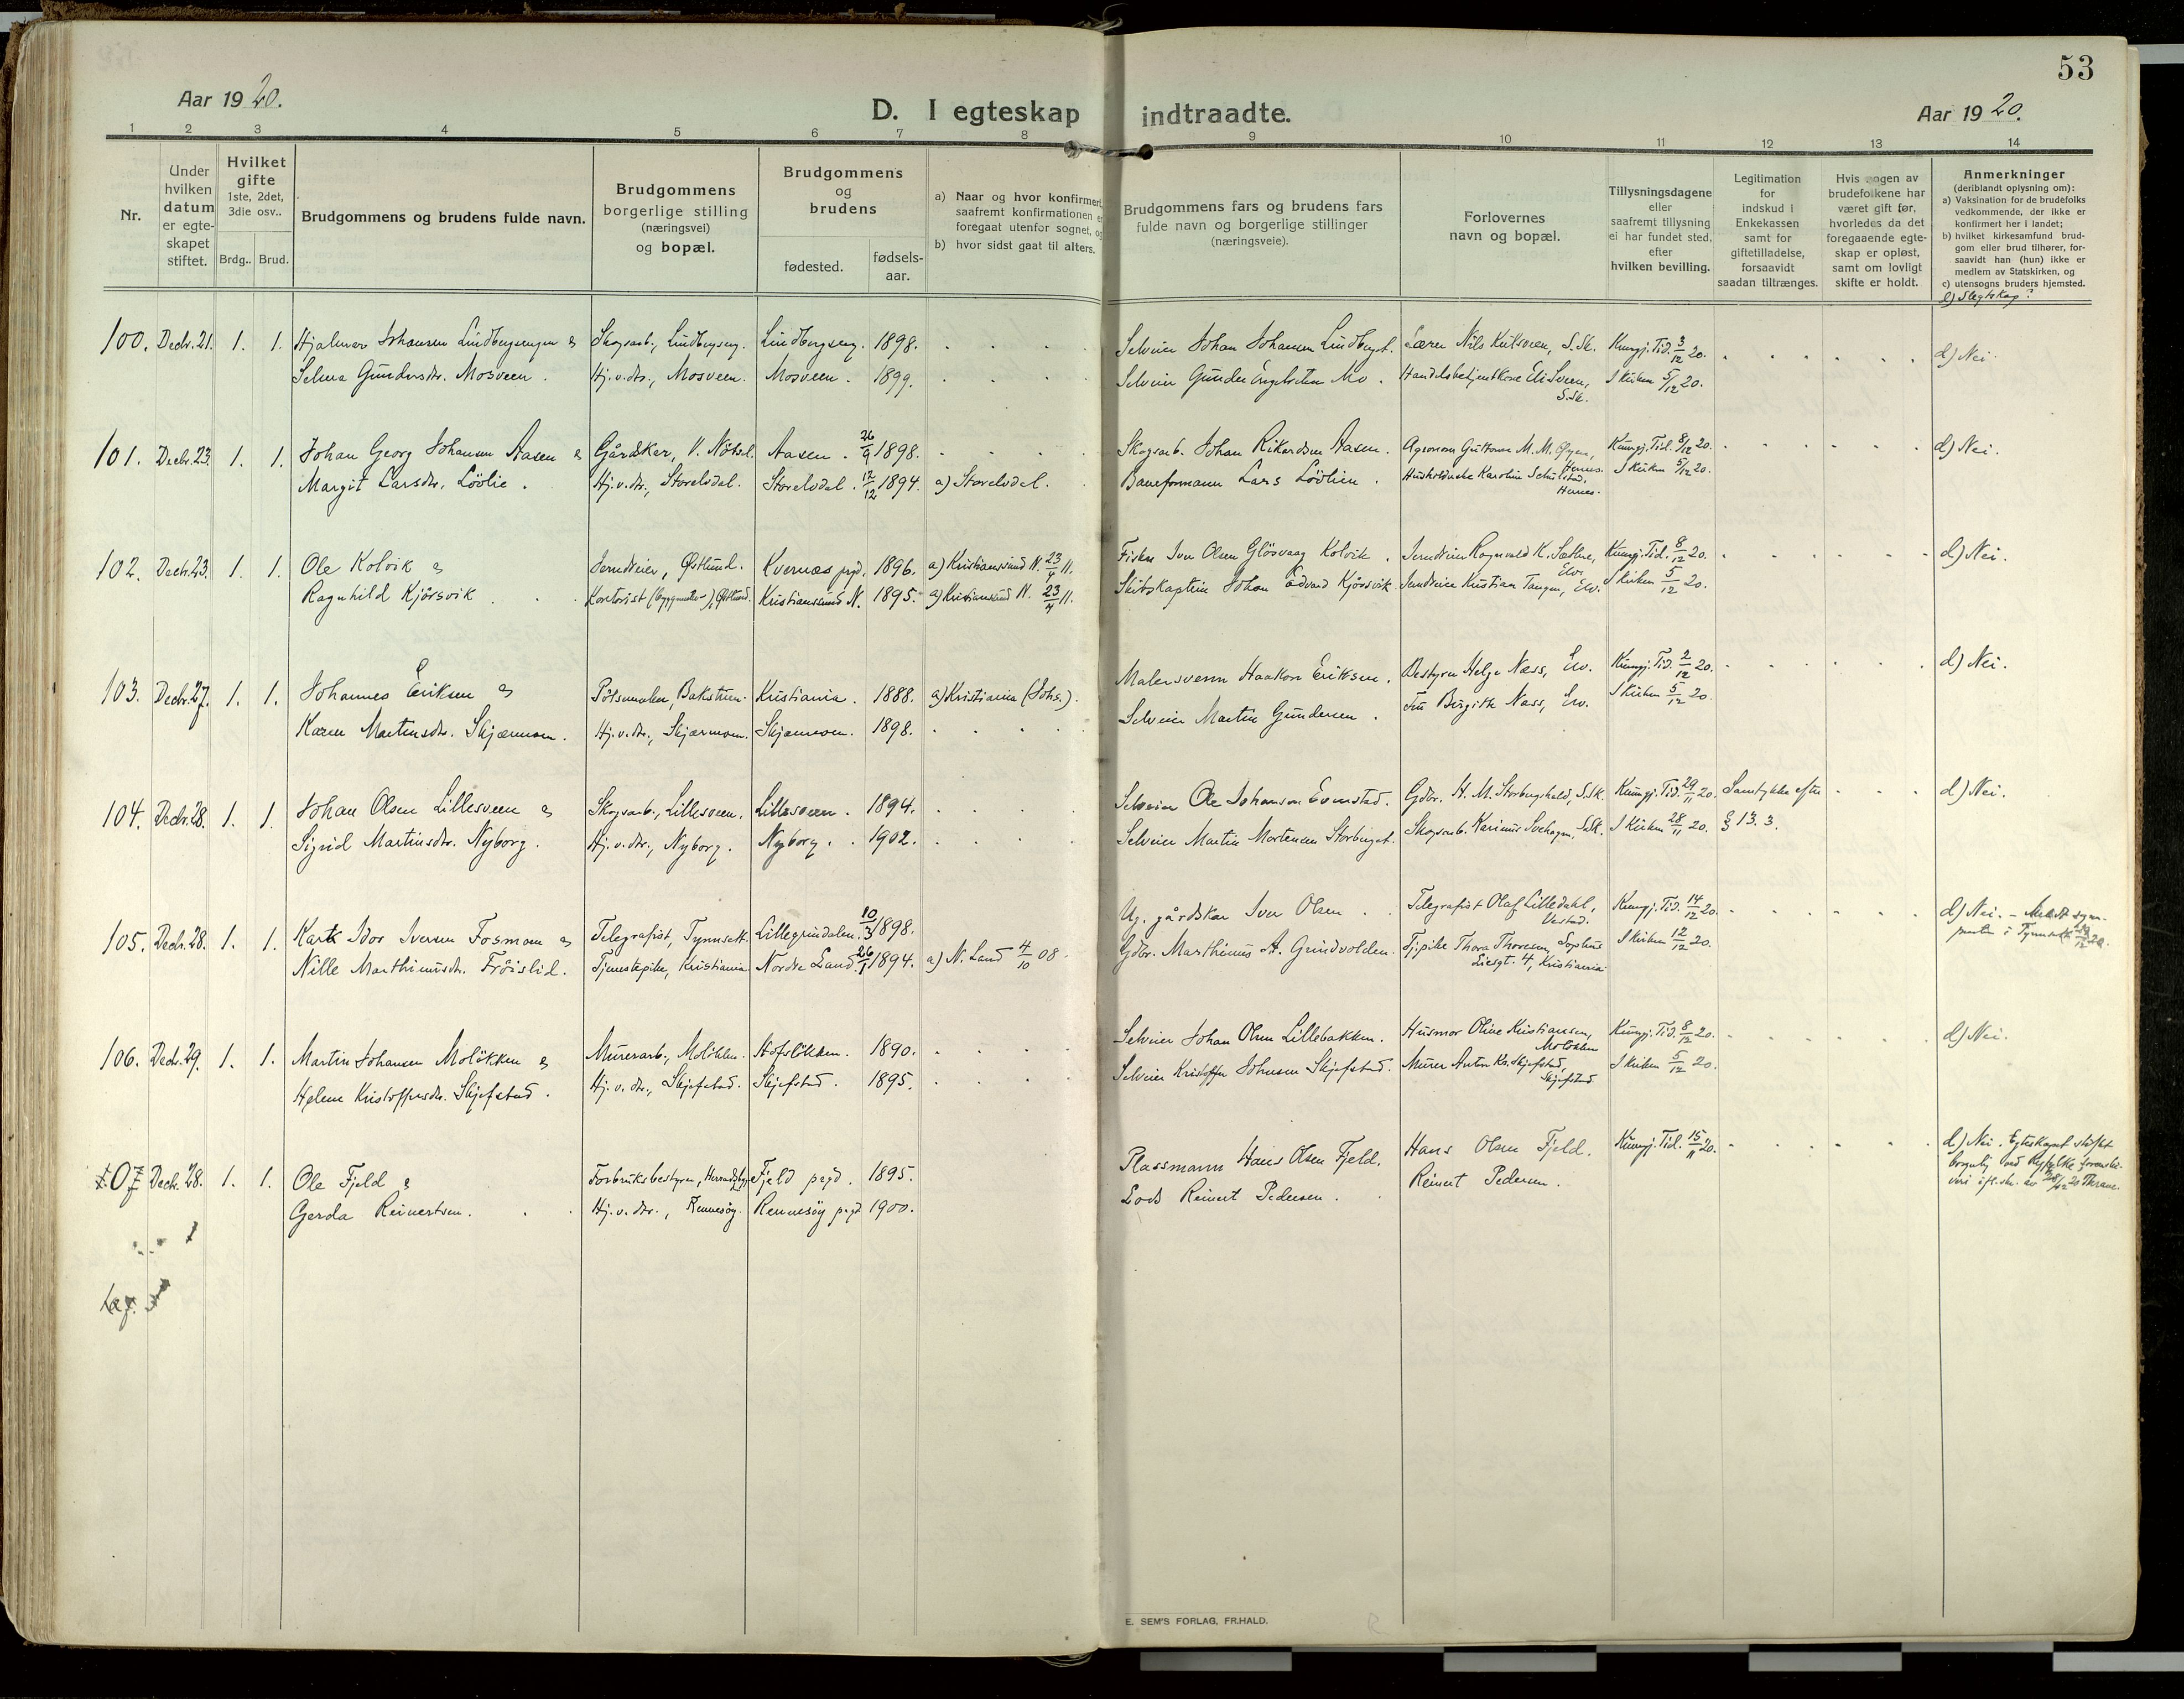 53
Aar 1920.
D. I egteskap indtraadte.
Aar 1920.
1 2 3 4 5 6 7 8 9 10 11 12 13 14
Nr.
Under hvilken datum er egte-skapet stiftet.
Hvilket gifte 1ste, 2det, 3die osv..
Brdg.. Brud.
Brudgommens og brudens fulde navn.
Brudgommens borgerlige stilling (næringsvei) og bopæl.
Brudgommens og brudens
fødested. fødsels-aar.
a) Naar og hvor konfirmert, saafremt konfirmationen er foregaat utenfor sognet, og
b) hvor sidst gaat til alters.
Brudgommens fars og brudens fars fulde navn og borgerlige stillinger (næringsveie).
Forlovernes navn og bopæl.
Tillysningsdagene eller saafremt tillysning ei har fundet sted, efter hvilken bevilling.
Legitimation for indskud i Enkekassen samt for giftetilladelse, forsaavidt saadan tiltrænges.
Hvis nogen av brudefolkene har været gift før, hvorledes da det foregaaende egte-skap er opløst, samt om lovligt skifte er holdt.
Anmerkninger (deriblandt oplysning om):
a) Vaksination for de brudefolks vedkommende, der ikke er konfirmert her i landet;
b) hvilket kirkesamfund brud-gom eller brud tilhører, for-saavidt han (hun) ikke er medlem av Statskirken, og
c) utensogns bruders hjemsted.
d) Slegtskap?
100. Decbr. 21. 1. 1. Hjalmar Johansen Lindbergsengen & Skogsarb., Lindbergseng. Lindbergseng. 1898. Selveier Johan Johansen Lindbergst. Lærer Nils Kultsveen, S.Sk. Kungj. Tid. 3/12 20. d) Nei.
Selma Gundersdtr. Mosveen. Hj.v.dtr., Mosveen. Mosveen. 1899. Selveier Gunder Engebretsen Mo. Handelsbetjent Kaare Elisveen, S.Sk. I kirken 5/12 20.
101. Decbr. 23. 1. 1. Johan Georg Johansen Aasen & Gårdskar, V. Nötsel. Aasen. 26/9 1898. Skogsarb. Johan Rikardsen Aasen. Agronom Guttorm M. M. Kungj. Tid. 8/12 20. d) Nei.
Margit Larsdtr. Lövlie. Hj.v.dtr., Storelvdal. Storelvdal. 12/12 1894. a) Storelvdal. Baneformann Lars Lövlien. Husholderske Karoline Schulstad, Hernes. I kirken 5/12 20.
102. Decbr. 23. 1. 1. Ole Kolvik & Jernbveier, Østlund. Kvernæs pgd. 1896. a) Kristianssund N. 23/4 11. Fisker Iver Olsen Glösvaag Kolvik. Ragnvald K. Sæther, Elv. Kungj. Tid. 8/12 20. d) Nei.
Ragnhild Kjörsvik. Kontorist, Østlund. Kristianssund N. 1895. a) Kristianssund N. 23/4 11. Skibskaptein Johan Edvard Kjörsvik. Kristian Tangen, Elv. I kirken 5/12 20.
103. Decbr. 27. 1. 1. Johannes Eriksen & Pölsemaker, Bakstuen. Kristiania. 1888. a) Kristiania (Johs.). Malersvenn Haakon Eriksen. Bestyrer Helge Næss, Elv. Kungj. Tid. 2/12 20. d) Nei.
Karen Martinsdtr. Skjærmoen. Hj.v.dtr., Skjærmoen. Skjærmoen. 1898. Selveier Martin Gundersen. Fru Birgitte Næss, Elv. I kirken 5/12 20.
104. Decbr. 28. 1. 1. Johan Olsen Lillesveen & Skogsarb., Lillesveen. Lillesveen. 1894. Selveier Ole Johansen Evenstad. Gdbr. H. M. Storbergshald, S.Sk. Kungj. Tid. 29/11 20. Samtykke efter d) Nei.
Sigrid Martinsdtr. Nyborg. Hj.v.dtr., Nyborg. Nyborg. 1902. Selveier Martin Mortensen Storberget. Skogsarb. Karinus Svehagen, S.Sk. I kirken 28/11 20. § 13. 3.
105. Decbr. 28. 1. 1. Karl Idor Iversen Fosmoen & Telegrafist, Tynnset. Lillegrindalen. 10/3 1898. Ug. gårdskar Iver Olsen. Telegrafist Olaf Lilledahl, Kungj. Tid. 14/12 20. d) Nei. –
Nille Marthinusdtr. Fröislid. Tjenestepike, Kristiania. Nordre Land. 26/1 1894. a) N. Land 4/10 08. Gdbr. Marthinus A. Grindvolden. Tj.pike Thora Thoresen, Sophus Liesgt. 4, Kristiania. I kirken 12/12 20.
106. Decbr. 29. 1. 1. Martin Johansen Molökken & Murerarb., Molökken. Hofslökken. 1890. Selveier Johan Olsen Lillebakken. Husmor Oline Kristiansen, Molökken. Kungj. Tid. 8/12 20. d) Nei.
Helene Kristoffersdtr. Skjefstad. Hj.v.dtr., Skjefstad. Skjefstad. 1895. Selveier Kristoffer Johnsen Skjefstad. Murer Anton Kr. Skjefstad, Skjefstad. I kirken 5/12 20.
107 Decbr. 28. 1. 1. Ole Fjeld & Forbruksbestyrer, Fjeld pgd. 1895. Plassmann Hans Olsen Fjeld. Hans Olsen Fjeld. Kungj. Tid. 15/11 20. d) Nei. Egteskapet stiftet borgerlig ved Ryfylke sorenskri-
Gerda Reinertsen. Hj.v.dtr., Rennesöy. Rennesöy pgd 1900. Lods Reinert Pedersen. Reinert Pedersen.
E. SEM'S FORLAG, FR.HALD.